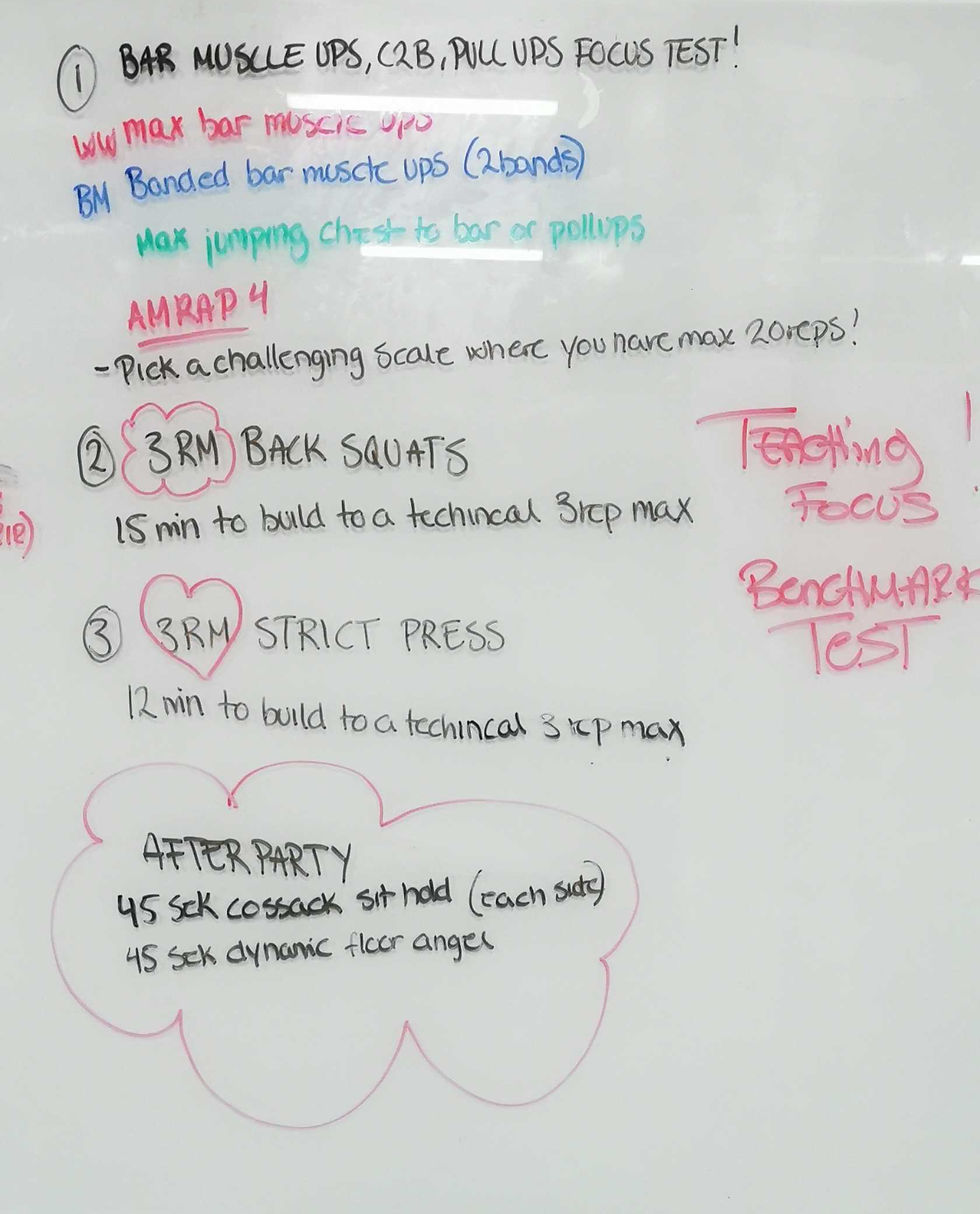 ① BAR MUSCLE UPS, C2B, PULL UPS FOCUS TEST!
WW max bar muscle ups
BM Banded bar muscle ups (2bands)
Max jumping chest to bar or pullups
AMRAP 4
- Pick a challenging scale where you have max 20reps!
② 3RM BACK SQUATS
15 min to build to a techincal 3rep max
③ 3RM STRICT PRESS
12 min to build to a techincal 3 rep max
AFTER PARTY
45 sek cossack sit hold (each side)
45 sek dynamic floor angel
TEACHing
FOCUS
BENCHMARK
TEST